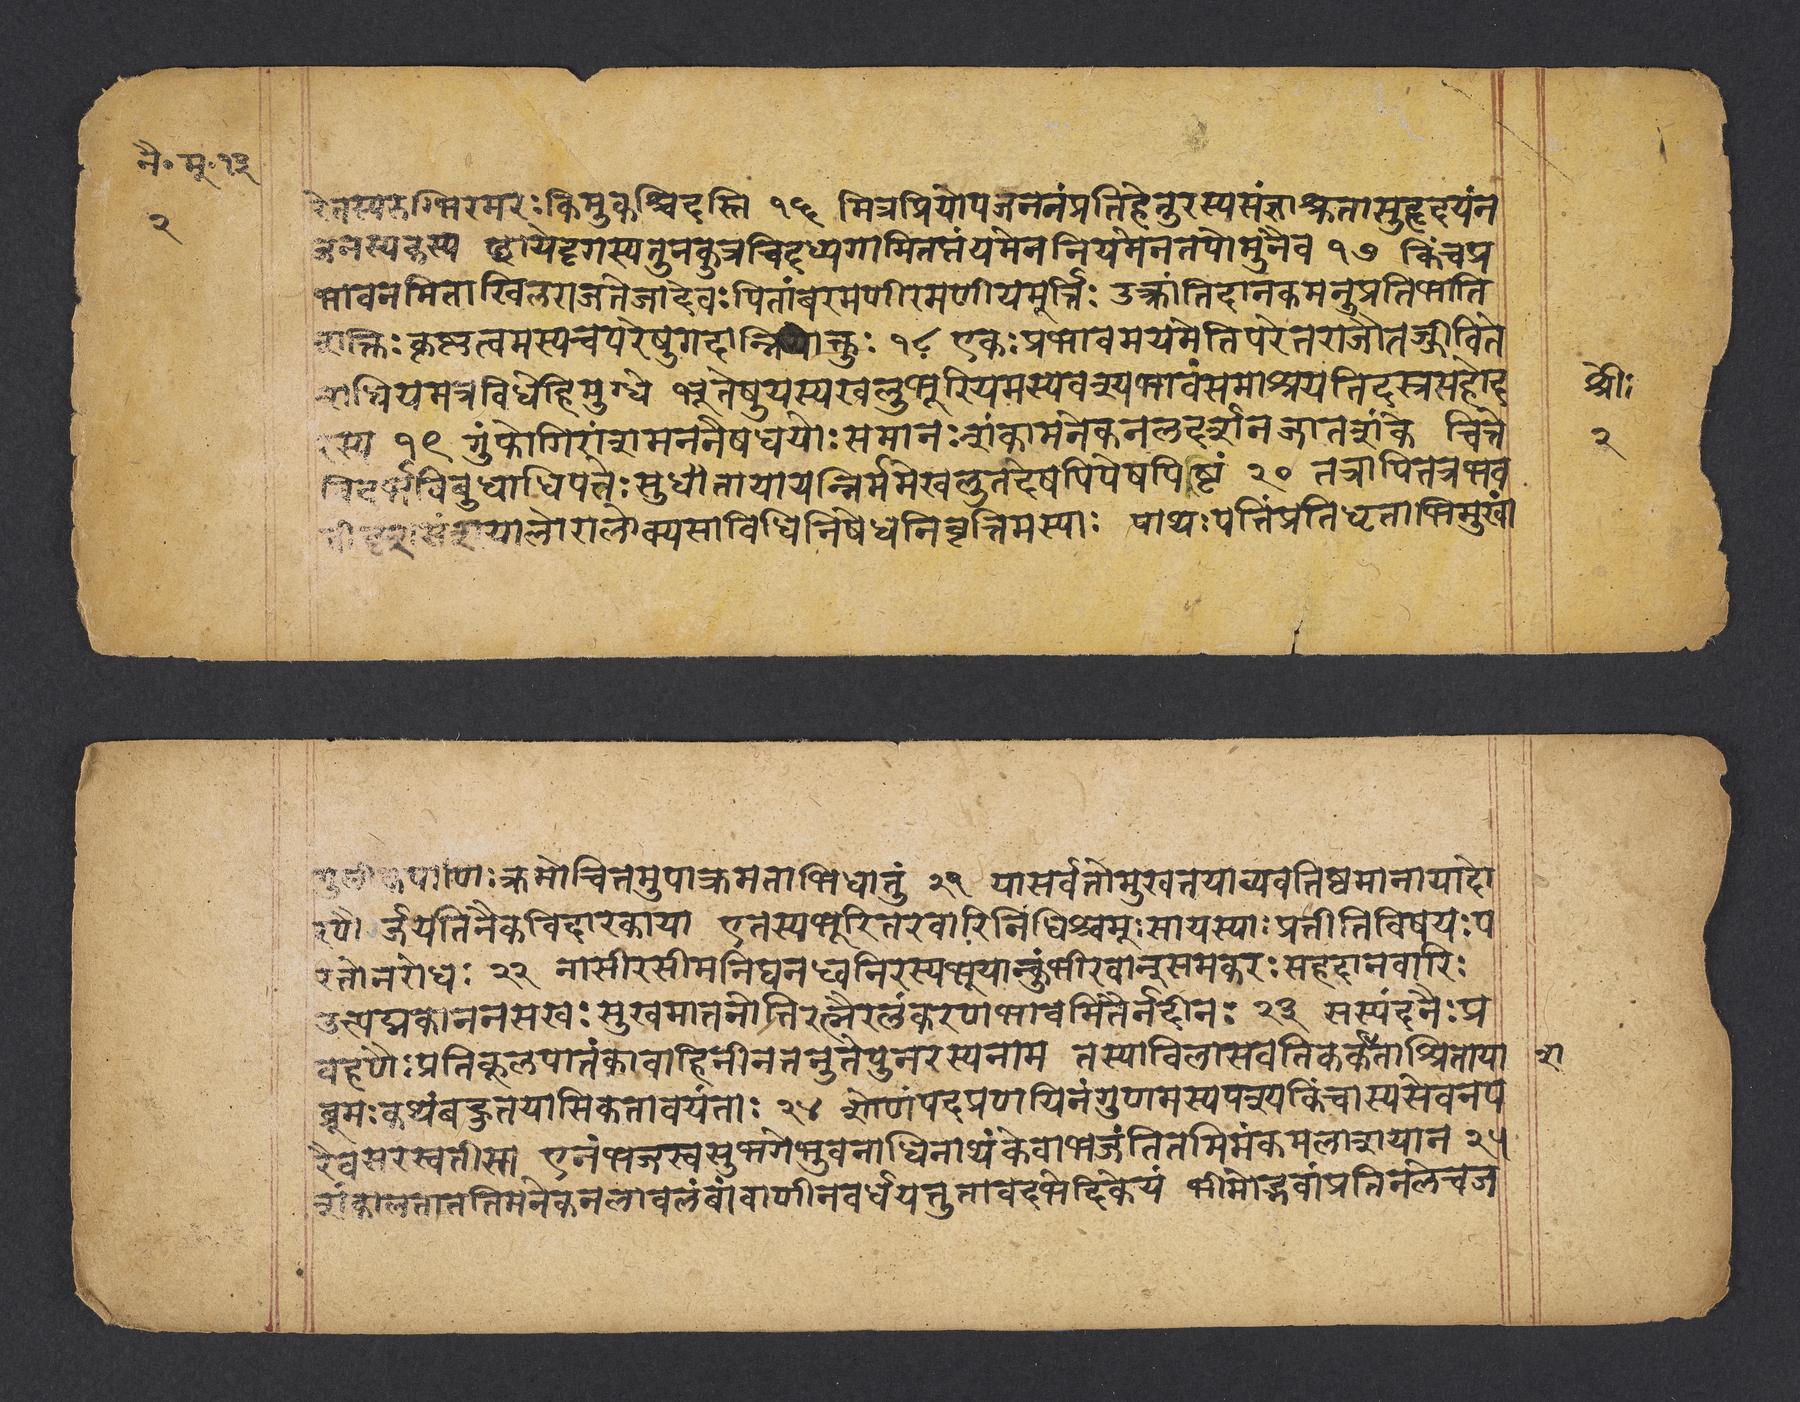 नै॰ मू॰ १३
२
रेतस्य तिग्मरमरःकिमुकश्चिदस्ति १६ मित्रप्रियोपजननंप्रतिहेतुरस्यसंज्ञाश्रुतासुहृदयंन
जनस्यकस्य छायेदृगस्यतुनकुत्रचिदध्यगामितप्तंयमेननियमेनतपोमुनैव १७ किंचप्र
भावनमिताखिलराजतेजादेवःपितांबरमणीरमणीयमूर्त्तिः उत्क्रांतिदानकमनुप्रतिभाति
शक्तिः कृष्टत्वमस्यचपरेषुगदान्नियोक्तुः १८ एकःप्रभावमयमेतिपरेतराजौतज्जीविते
शधियमत्रविधेहिमुग्धे भूतेषुयस्यखलुभूरियमस्यवश्यभावंसमाश्रयतिदस्रसहोद
रस्य १९ गुंफोगिरांशमननैषधयोःसमानःशंकामनेकनलदर्शनजातशंके चित्ते
विदर्भविबुधाधिपतेःसुधीतायायन्निर्ममेखलुतदेषपिपेषपिष्टिं २० तत्रापितत्रभव
तीभृशसंशयालोरालोक्यसाविधिनिषेधनिवृत्तिमस्याः पाथःपतिंप्रतिधृताभिमुखां
श्रीः
२
गुलीकपाणिःक्रमोचितमुपाक्रमताभिधातुं २१ यासर्वतोमुखतयाव्यवतिष्ठमानायादो
रणैर्जयतिनैकविदारकाया एतस्यभूरितरवारिनिधिश्चमूःसायस्याःप्रतीतिविषयःप
रतोनरोधः २२ नासीरसीमनिघनध्वनिरस्यभूयान्कुंभीरवान्समकरःसहदानवारिः
उत्पद्मकाननसखःसुखमातनोतिरत्नैरलंकरणभावमितैर्नदीनः २३ सस्यंदनैःप्र
वहणैःप्रतिकूलपातंकावाहिनीनतनुतेपुनरस्यनाम तस्याविलासवतिकर्कशताश्रिताया
श
ब्रूमःकथंबहुतयासिकतावयंताः २४ शोणंपदप्रणयिनंगुणमस्यपश्यकिंचास्यसेवनप
रैवसरस्वतीसा एनंभजस्वसुभगेभुवनाधिनाथंकेवाभजंतितमिमंकमलाशयान २५
शंकालताततिमनेकनलावलंबांवाणीनवर्धयतुतावदभेदिकेयं भीमोद्भवांप्रतिनलेचज